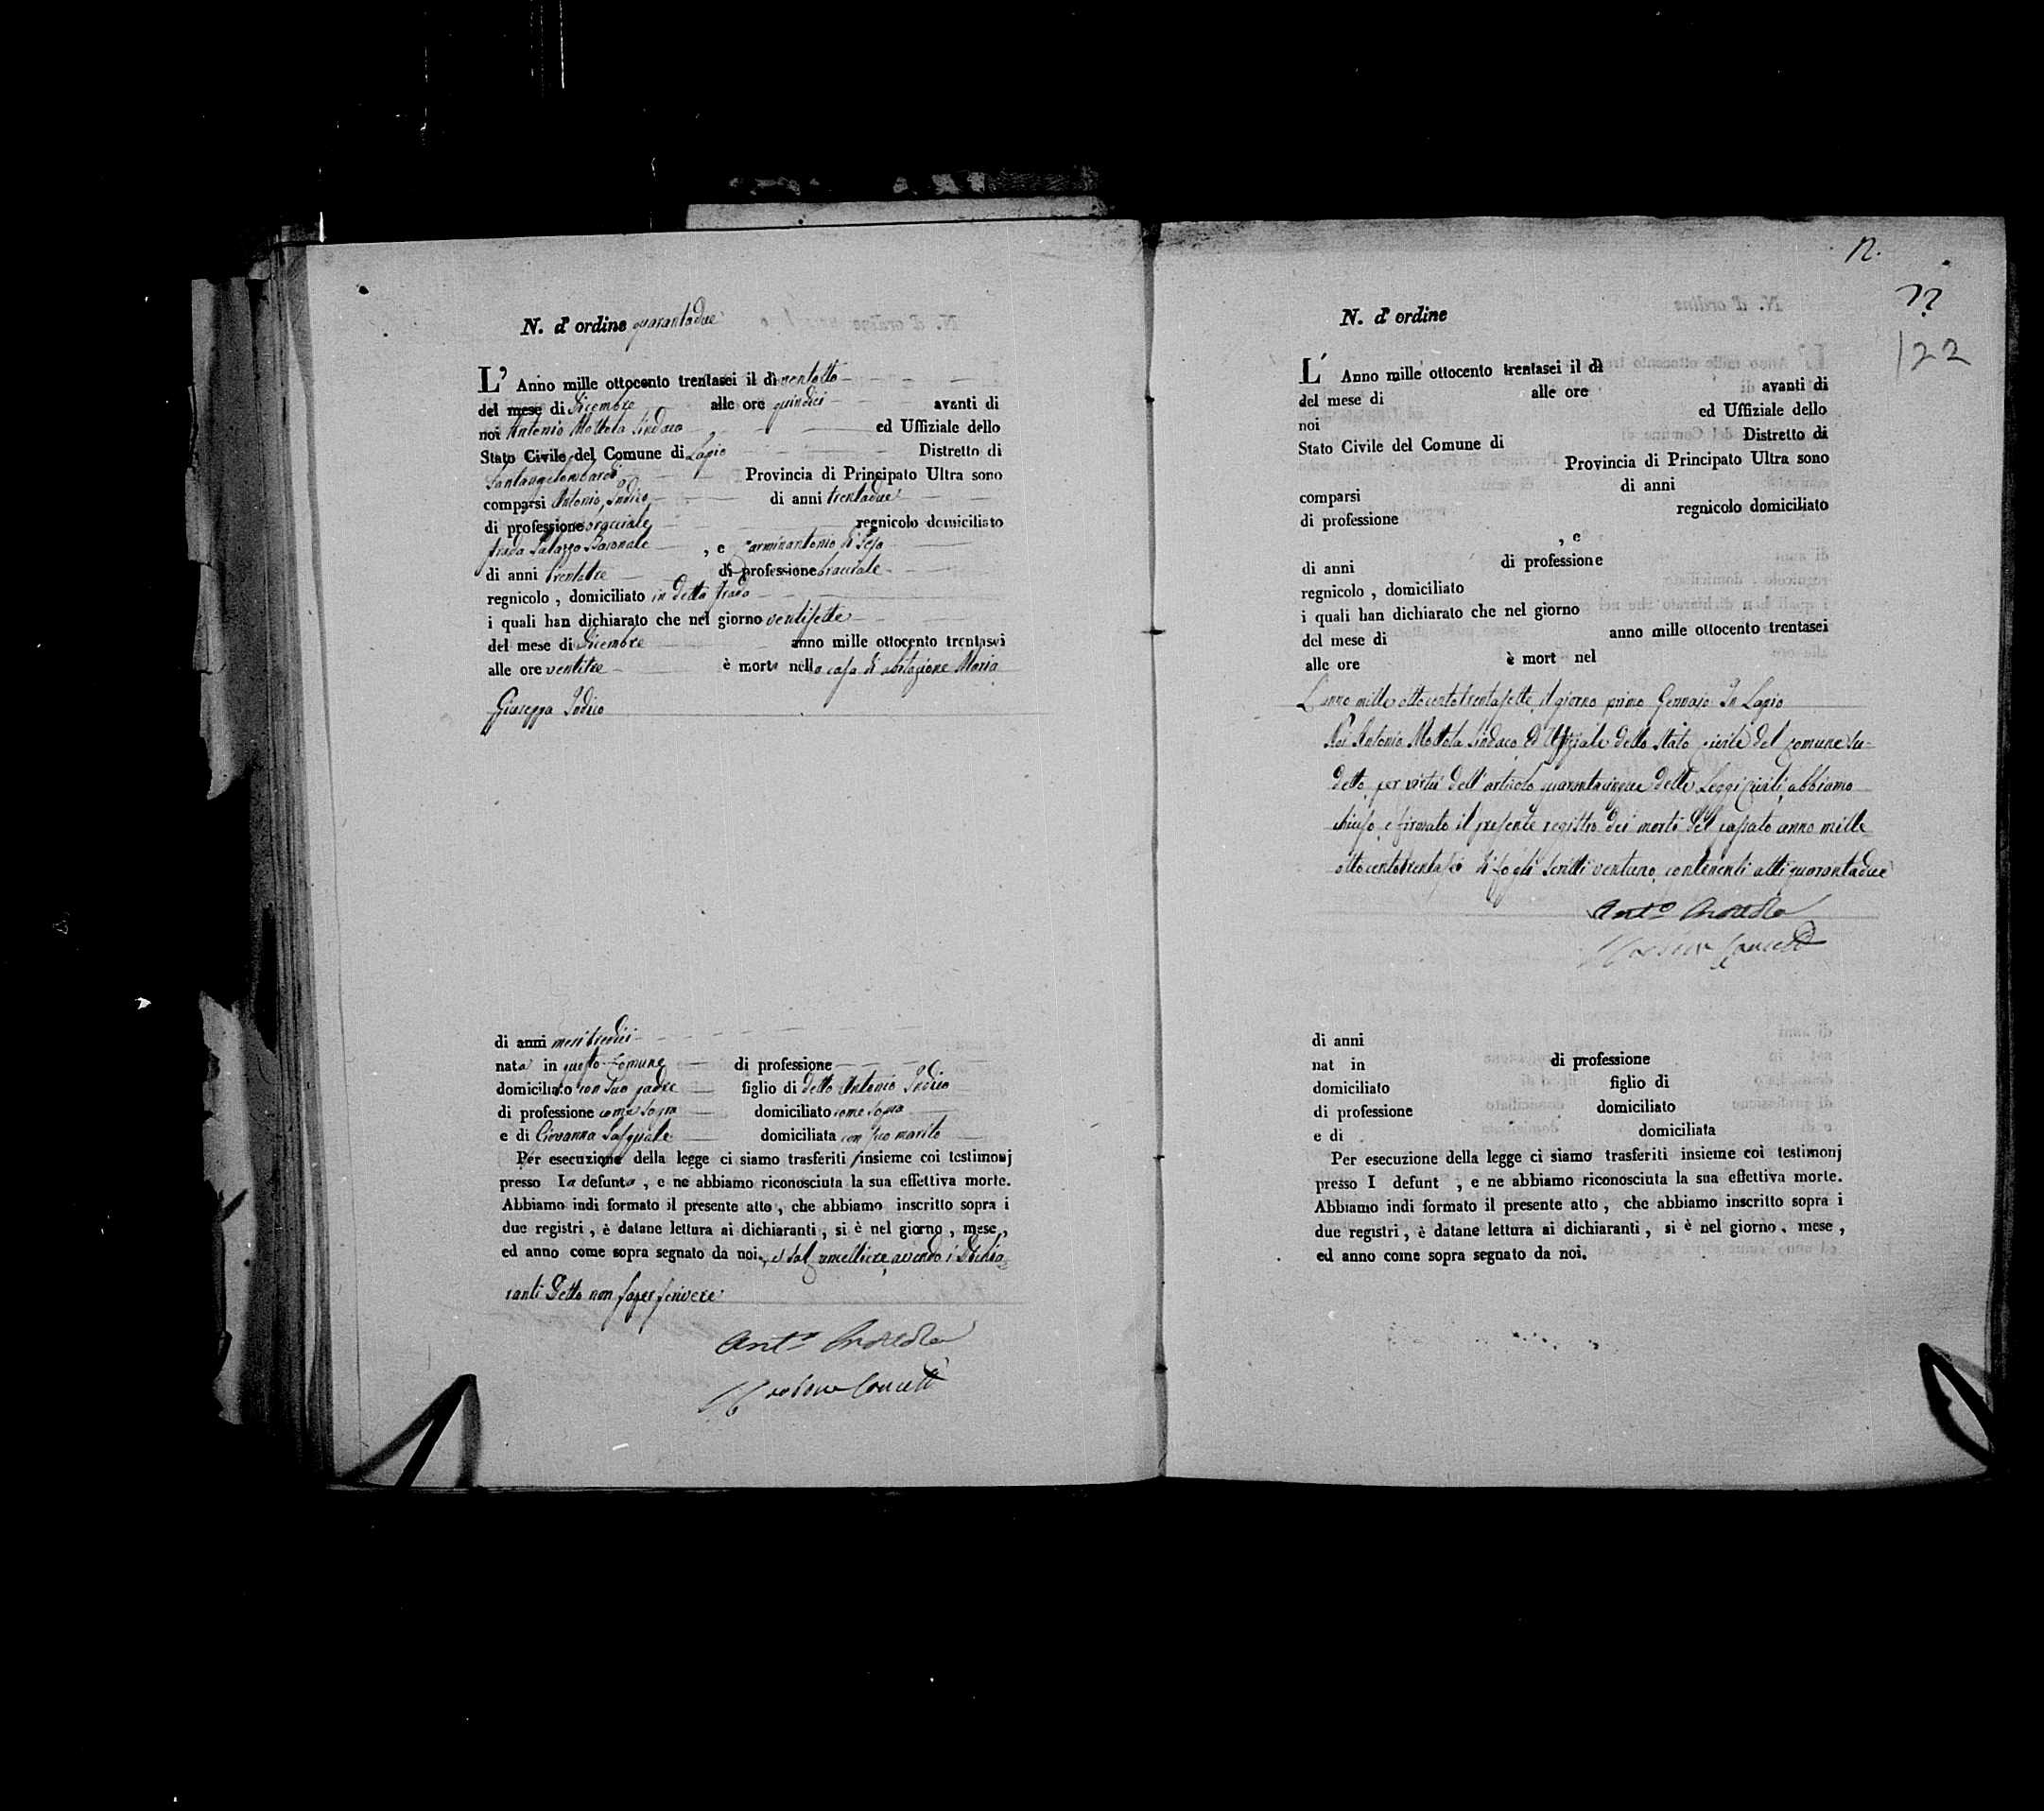 N. d'ordine quarantadue
L' Anno mille ottocento trentasei il dì ventotto
del mese di Dicembre alle ore quindici avanti di
noi Antonio Mottola Sindaco ed Uffiziale dello
Stato Civile del Comune di Lapio Distretto di
Santangelombardi Provincia di Principato Ultra sono
comparsi Antonio Indico di anni trentadue
di professione bracciale regnicolo domiciliato
strada Palazzo Baronale , e Carminantonio di
di anni trentatre di professione bracciale
regnicolo , domiciliato in detta strada
i quali han dichiarato che nel giorno ventisette
del mese di Dicembre anno mille ottocento trentasei
alle ore ventitre è morta nella casa di abitazione Maria
Giuseppa Indico
di anni mesi tredici
nata in questo Comune di professione
domiciliato con suo padre figlio di detto Antonio Indico
di professione come sopra domiciliato come sopra
e di Giovanna Pasquale domiciliata con suo marito
Per esecuzione della legge ci siamo trasferiti insieme coi testimonj
presso la defunta , e ne abbiamo riconosciuta la sua effettiva morte.
Abbiamo indi formato il presente atto , che abbiamo inscritto sopra i
due registri , è datane lettura ai dichiaranti , si è nel giorno , mese ,
ed anno come sopra segnato da noi, e dal Cancelliere, avendo i Dichia-
ranti detto non saper scrivere
Ant.o Mottola
12.
122
N. d'ordine
L' Anno mille ottocento trentasei il dì
del mese di alle ore avanti di
noi ed Uffiziale dello
Stato Civile del Comune di Distretto di
Provincia di Principato Ultra sono
comparsi di anni
di professione regnicolo domiciliato
, e
di anni di professione
regnicolo , domiciliato
i quali han dichiarato che nel giorno
del mese di anno mille ottocento trentasei
alle ore è mort nel
L'anno mille ottocentotrentasette il giorno primo Gennajo In Lapio
Noi Antonio Mottola Sindaco ed Uffiziale dello stato civile del Comune su-
detto per virtù dell'articolo quarantacinque delle Leggi civili, abbiamo
chiuso e firmato il presente registro dei morti del passato anno mille
ottocentotrentasei di fogli scritti ventuno contenenti atti quarantadue
Ant.o Mottola
di anni
nat in di professione
domiciliato figlio di
di professione domiciliato
e di domiciliata
Per esecuzione della legge ci siamo trasferiti insieme coi testimonj
presso l defunt , e ne abbiamo riconosciuta la sua effettiva morte.
Abbiamo indi formato il presente atto , che abbiamo inscritto sopra i
due registri , è datane lettura ai dichiaranti , si è nel giorno , mese ,
ed anno come sopra segnato da noi.